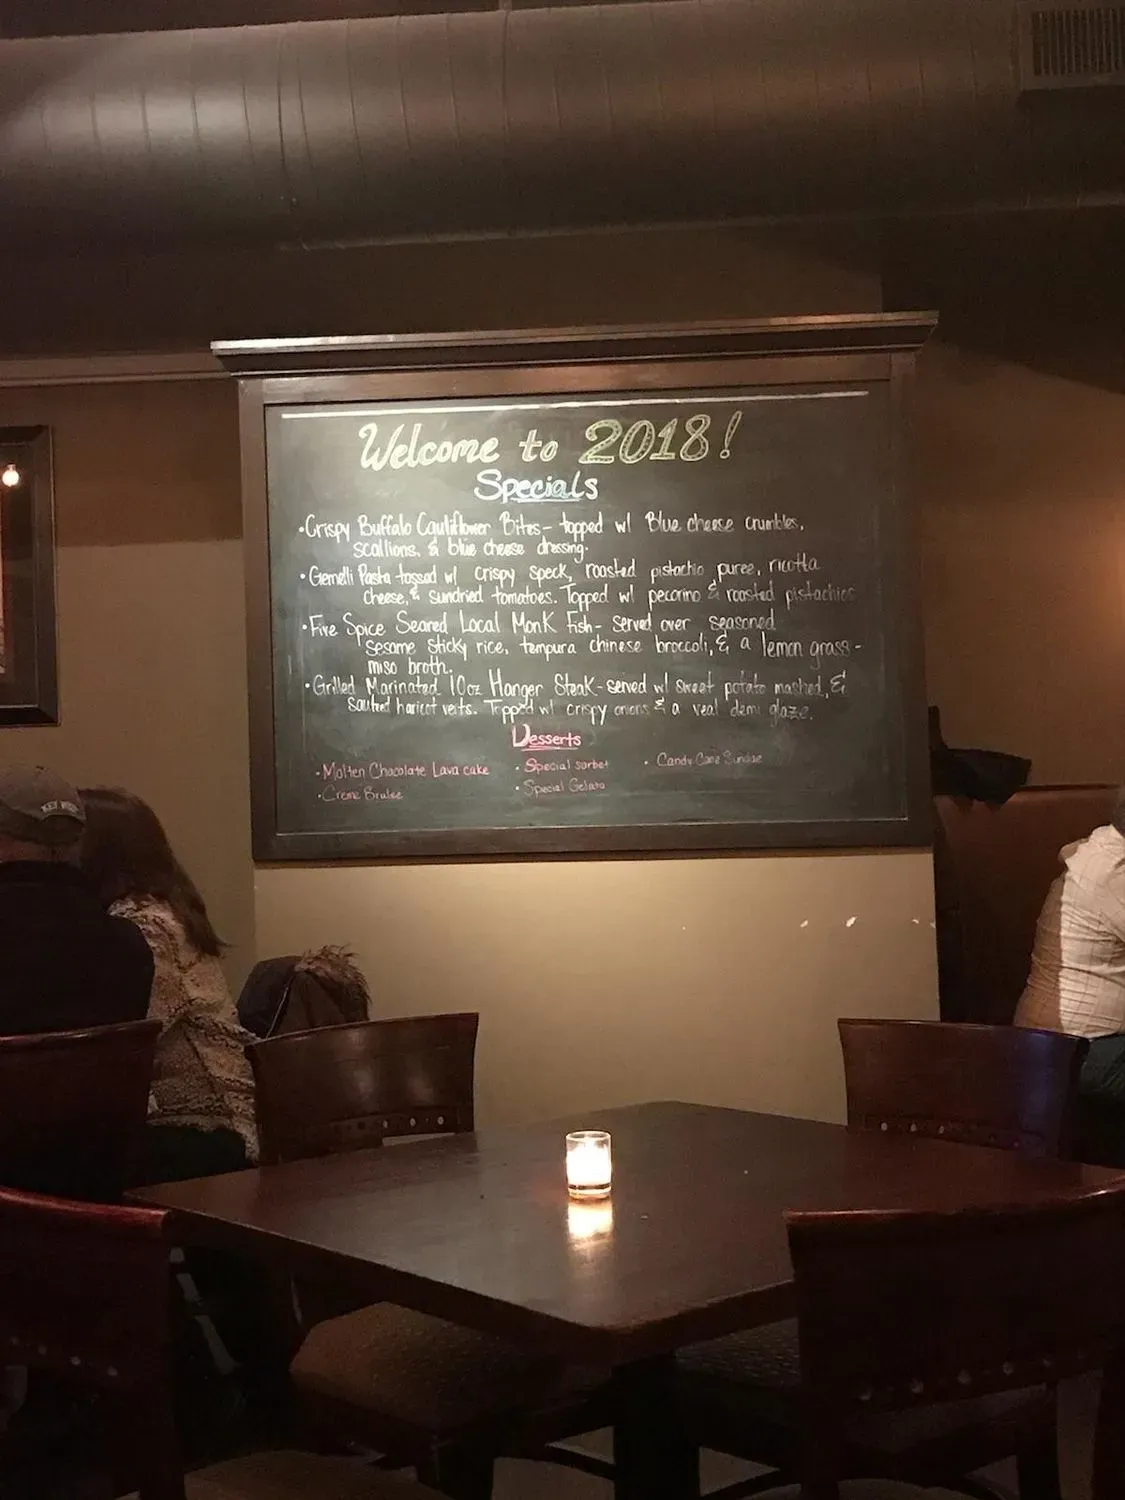 Welcome to 2018!
Specials
• Crispy Buffalo Cauliflower Bites - topped w/ Blue cheese crumbles,
scallions, & blue cheese dressing.
• Gemelli Pasta tossed w/ crispy speck, roasted pistachio puree, ricotta
cheese, & sundried tomatoes. Topped w/ pecorino & roasted pistachios
• Five Spice Seared Local Monk Fish - served over seasoned
sesame sticky rice, tempura chinese broccoli, & a lemon grass-
miso broth.
• Grilled Marinated 10oz Hanger Steak - served w/ sweet potato mashed, &
sauteed haricot verts. Topped w/ crispy onions & a veal demi glaze.
Desserts
• Molten Chocolate Lava cake
• Creme Brulee
• Special sorbet
• Special Gelato
• Candy Cane Sundae